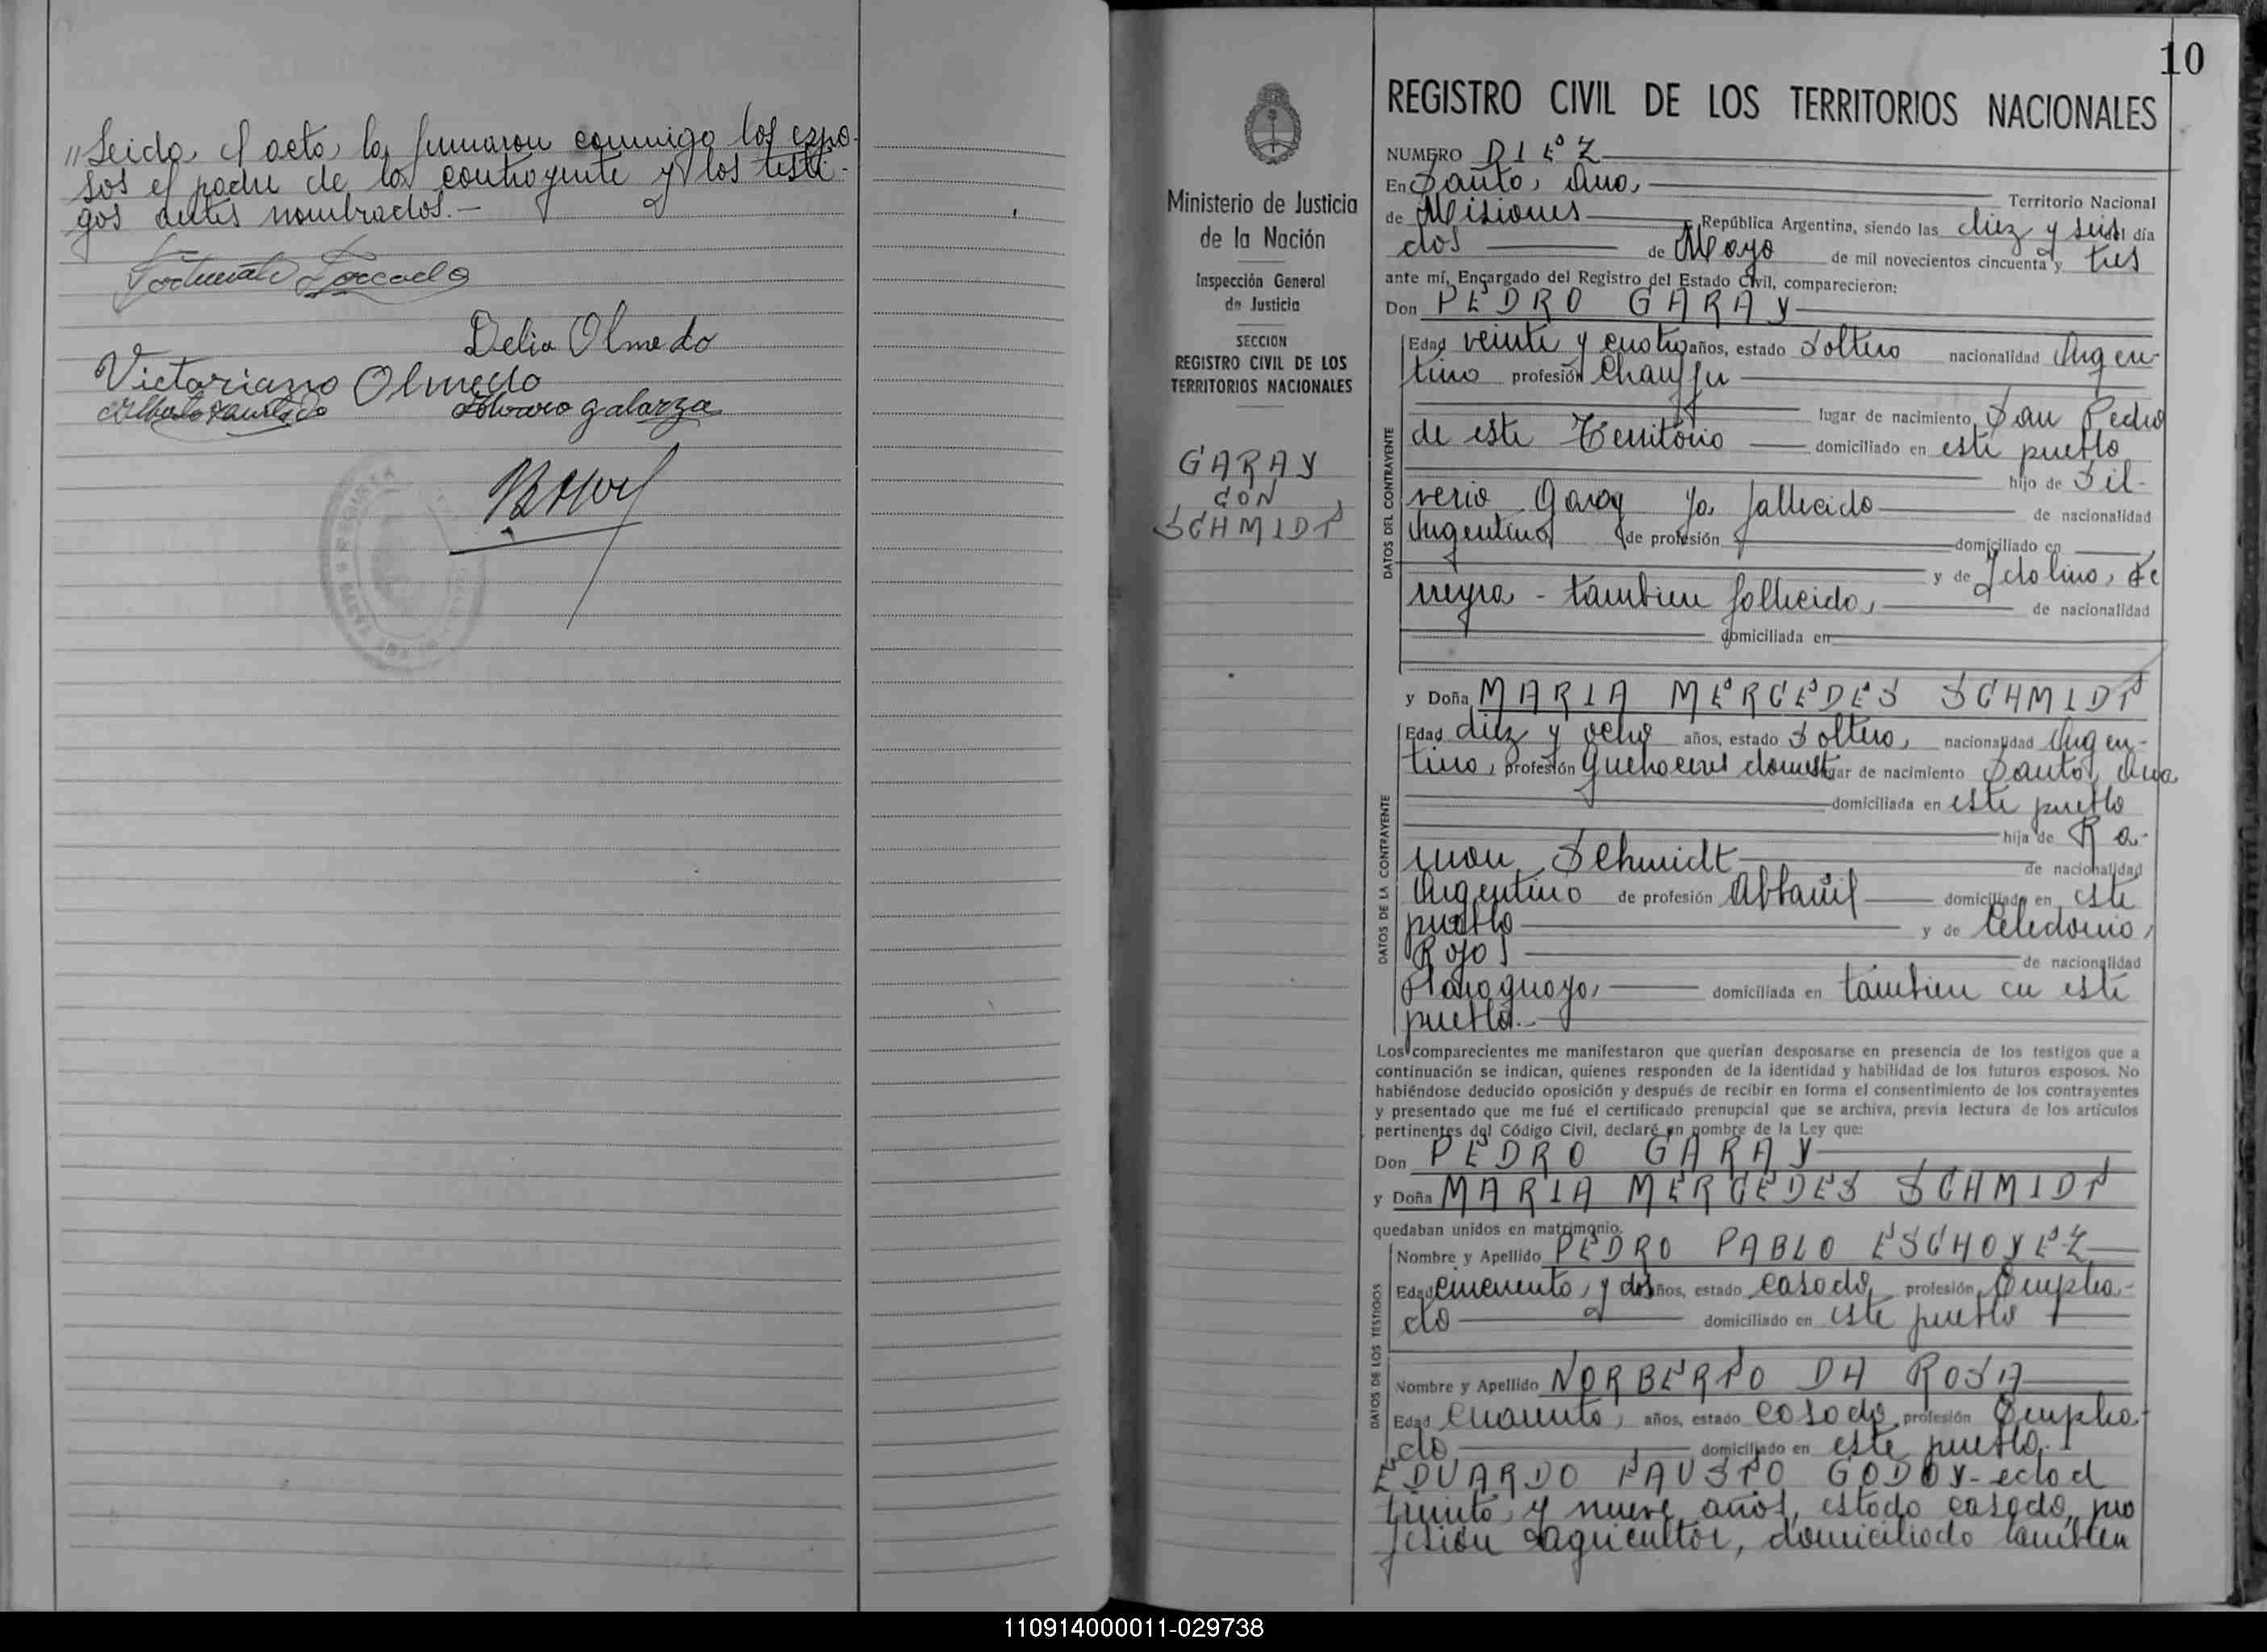 "Leida el acta, la firmaron conmigo los espo-
sos el padre de la contrayente y los testi-
gos antes nombrados.-
Delia Olmedo
Victoriano Olmedo
Alvaro Galarza
10
REGISTRO CIVIL DE LOS TERRITORIOS NACIONALES
Ministerio de Justicia
de la Nación
Inspección General
de Justicia
SECCION
REGISTRO CIVIL DE LOS
TERRITORIOS NACIONALES
GARAY
CON
SCHMIDT
NUMERO DIEZ
En Santa Ana, Territorio Nacional
de Misiones República Argentina, siendo las diez y seis el día
dos de Mayo de mil novecientos cincuenta y tres
ante mí, Encargado del Registro del Estado Civil, comparecieron:
Don PEDRO GARAY
DATOS DEL CONTRAYENTE
Edad veinte y cuatro años, estado Soltero nacionalidad Argen-
tino profesión Chauffer
lugar de nacimiento San Pedro
de este Territorio domiciliado en este pueblo
hijo de Sil-
verio Garay ya fallecido de nacionalidad
Argentina de profesión domiciliado en
y de Idalina Fe
rreyra - tambien fallecida, de nacionalidad
domiciliada en
y Doña MARIA MERCEDES SCHMIDT
DATOS DE LA CONTRAYENTE
Edad diez y ocho años, estado Soltera, nacionalidad Argen-
tina, profesión quehaceres domest lugar de nacimiento Santa Ana
domiciliada en este pueblo
hija de Ra-
mon Schmidt de nacionalidad
Argentino de profesión Albañil domiciliado en este
pueblo y de Celedonia
Rojas de nacionalidad
Paraguaya, domiciliada en tambien en este
pueblo.-
Los comparecientes me manifestaron que querían desposarse en presencia de los testigos que a
continuación se indican, quienes responden de la identidad y habilidad de los futuros esposos. No
habiéndose deducido oposición y después de recibir en forma el consentimiento de los contrayentes
y presentado que me fué el certificado prenupcial que se archiva, previa lectura de los artículos
pertinentes del Código Civil, declaré en nombre de la Ley que:
Don PEDRO GARAY
y Doña MARIA MERCEDES SCHMIDT
quedaban unidos en matrimonio.
DATOS DE LOS TESTIGOS
Nombre y Apellido PEDRO PABLO ESCHOYEZ
Edad cincuenta y dos años, estado casado profesión Emplea-
do domiciliado en este pueblo
Nombre y Apellido NORBERTO DA ROSA
Edad cuarenta, años, estado casado profesión Emplea-
do domiciliado en este pueblo.
EDUARDO FAUSTO GODOY - edad
treinta y nueve años, estado casado, pro
fesion agricultor, domiciliado tambien
110914000011-029738